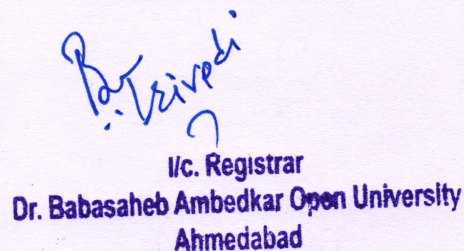 Trivedi
I/c. Registrar
Dr. Babasaheb Ambedkar Open University
Ahmedabad